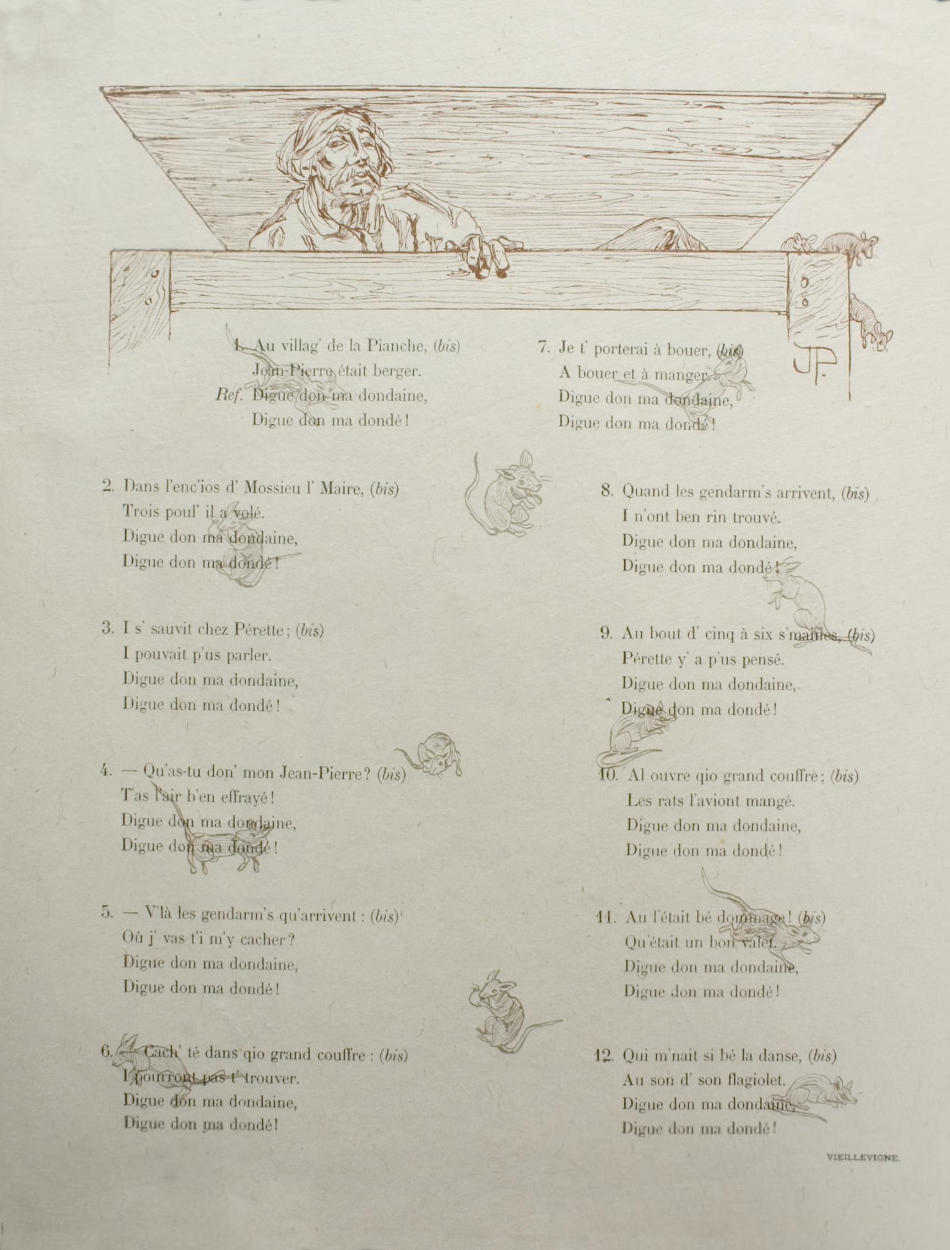 1. Au villag' de la Pianche, (bis)
Jean-Pierre était berger.
Ref. Digue don ma dondaine,
Digue don ma dondé !
2. Dans l'enc'ios d' Mossieu l' Maire, (bis)
Trois poul' il a volé.
Digue don ma dondaine,
Digue don ma dondé !
3. I s' sauvit chez Pérette ; (bis)
I pouvait p'us parler.
Digue don ma dondaine,
Digue don ma dondé !
4. — Qu'as-tu don' mon Jean-Pierre ? (bis)
T'as l'air b'en effrayé !
Digue don ma dondaine,
Digue don ma dondé !
5. — V'là les gendarm's qu'arrivent : (bis)
Où j' vas t'i m'y cacher ?
Digue don ma dondaine,
Digue don ma dondé !
6. — Cach' té dans qio grand couffre : (bis)
I pourront pas t' trouver.
Digue don ma dondaine,
Digue don ma dondé !
7. Je t' porterai à bouer, (bis)
A bouer et à manger.
Digue don ma dondaine,
Digue don ma dondé !
JP.
8. Quand les gendarm's arrivent, (bis)
I n'ont ben rin trouvé.
Digue don ma dondaine,
Digue don ma dondé !
9. Au bout d' cinq à six s'maines, (bis)
Pérette y' a p'us pensé.
Digue don ma dondaine,
Digue don ma dondé !
10. Al ouvre qio grand couffre ; (bis)
Les rats l'aviont mangé.
Digue don ma dondaine,
Digue don ma dondé !
11. Au l'était bé dommage ! (bis)
Qu'était un bon valet.
Digue don ma dondaine,
Digue don ma dondé !
12. Qui m'nait si bé la danse, (bis)
Au son d' son flagiolet.
Digue don ma dondaine,
Digue don ma dondé !
VIEILLEVIGNE.